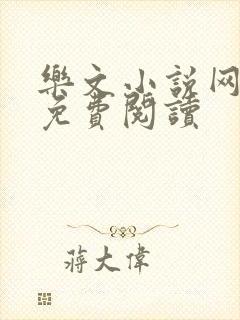 樂文小说网
免費閱讀
蔣大偉